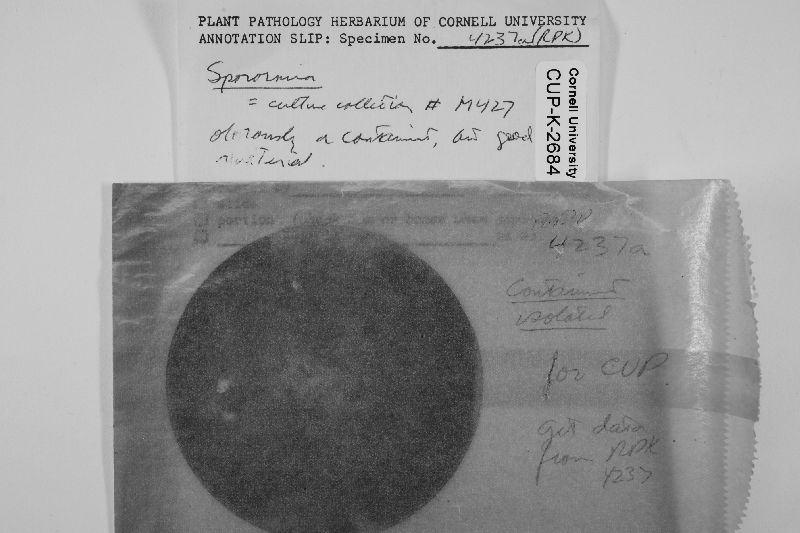 PLANT PATHOLOGY HERBARIUM OF CORNELL UNIVERSITY
ANNOTATION SLIP: Specimen No. 4237a (RPK)
Sporormia
= culture collection # M427
obviously a contaminant, but good
material.
Cornell University
CUP-K-2684
portion
4237a
Contaminant
isolated
for CUP
get data
from RPK
4237